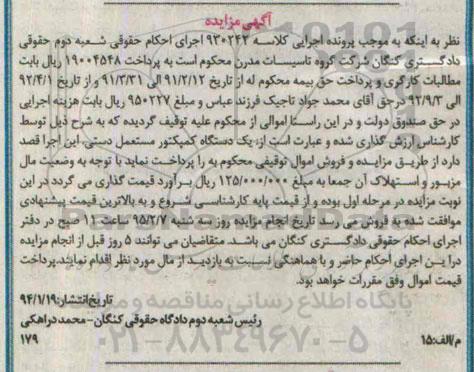 آگهی مزایده
نظر به اینکه به موجب پرونده اجرایی کلاسه ۹۳۰۲۴۲ اجرای احکام حقوقی شعبه دوم حقوقی
دادگستری کنگان شرکت گروه تاسیسات مدرن محکوم است به پرداخت ۱۹۰۰۴۵۴۸ ریال بابت
مطالبات کارگری و پرداخت حق بیمه محکوم له از تاریخ ۹۱/۲/۱۲ الی ۹۱/۳/۳۱ و از تاریخ ۹۲/۴/۱
الی ۹۲/۹/۳ درحق آقای محمد جواد تاجیک فرزند عباس و مبلغ ۹۵۰۲۲۷ ریال بابت هزینه اجرایی
در حق صندوق دولت و در این راستا اموالی از محکوم علیه توقیف گردیده که به شرح ذیل توسط
کارشناس ارزش گذاری شده و عبارت است از، یک دستگاه کمپکتور مستعمل دستی. این اجرا قصد
دارد از طریق مزایده و فروش اموال توقیفی محکوم به را پرداخت نماید با توجه به وضعیت مال
مزبور و استهلاک آن جمعا به مبلغ ۱۲۵/۰۰۰/۰۰۰ ریال برآورد قیمت گذاری می گردد در این
نوبت مزایده در مرحله اول بوده و از قیمت پایه کارشناسی شروع و به بالاترین قیمت پیشنهادی
موافقت شده به فروش می رسد تاریخ انجام مزایده روز سه شنبه ۹۵/۲/۷ ساعت ۱۱ صبح در دفتر
اجرای احکام حقوقی دادگستری کنگان می باشد. متقاضیان می توانند ۵ روز قبل از انجام مزایده
در این اجرای احکام حاضر و با هماهنگی نسبت به بازدید از مال مورد نظر اقدام نمایند.پرداخت
قیمت اموال وفق مقررات خواهد بود.
تاریخ انتشار: ۹۴/۱/۱۹
رئیس شعبه دوم دادگاه حقوقی کنگان-محمد دراهکی
م/الف:۱۵
۱۷۹
پایگاه اطلاع رسانی مناقصه و مزایده
۰۲۱-۸۸۳۴۹۶۷۰-۵